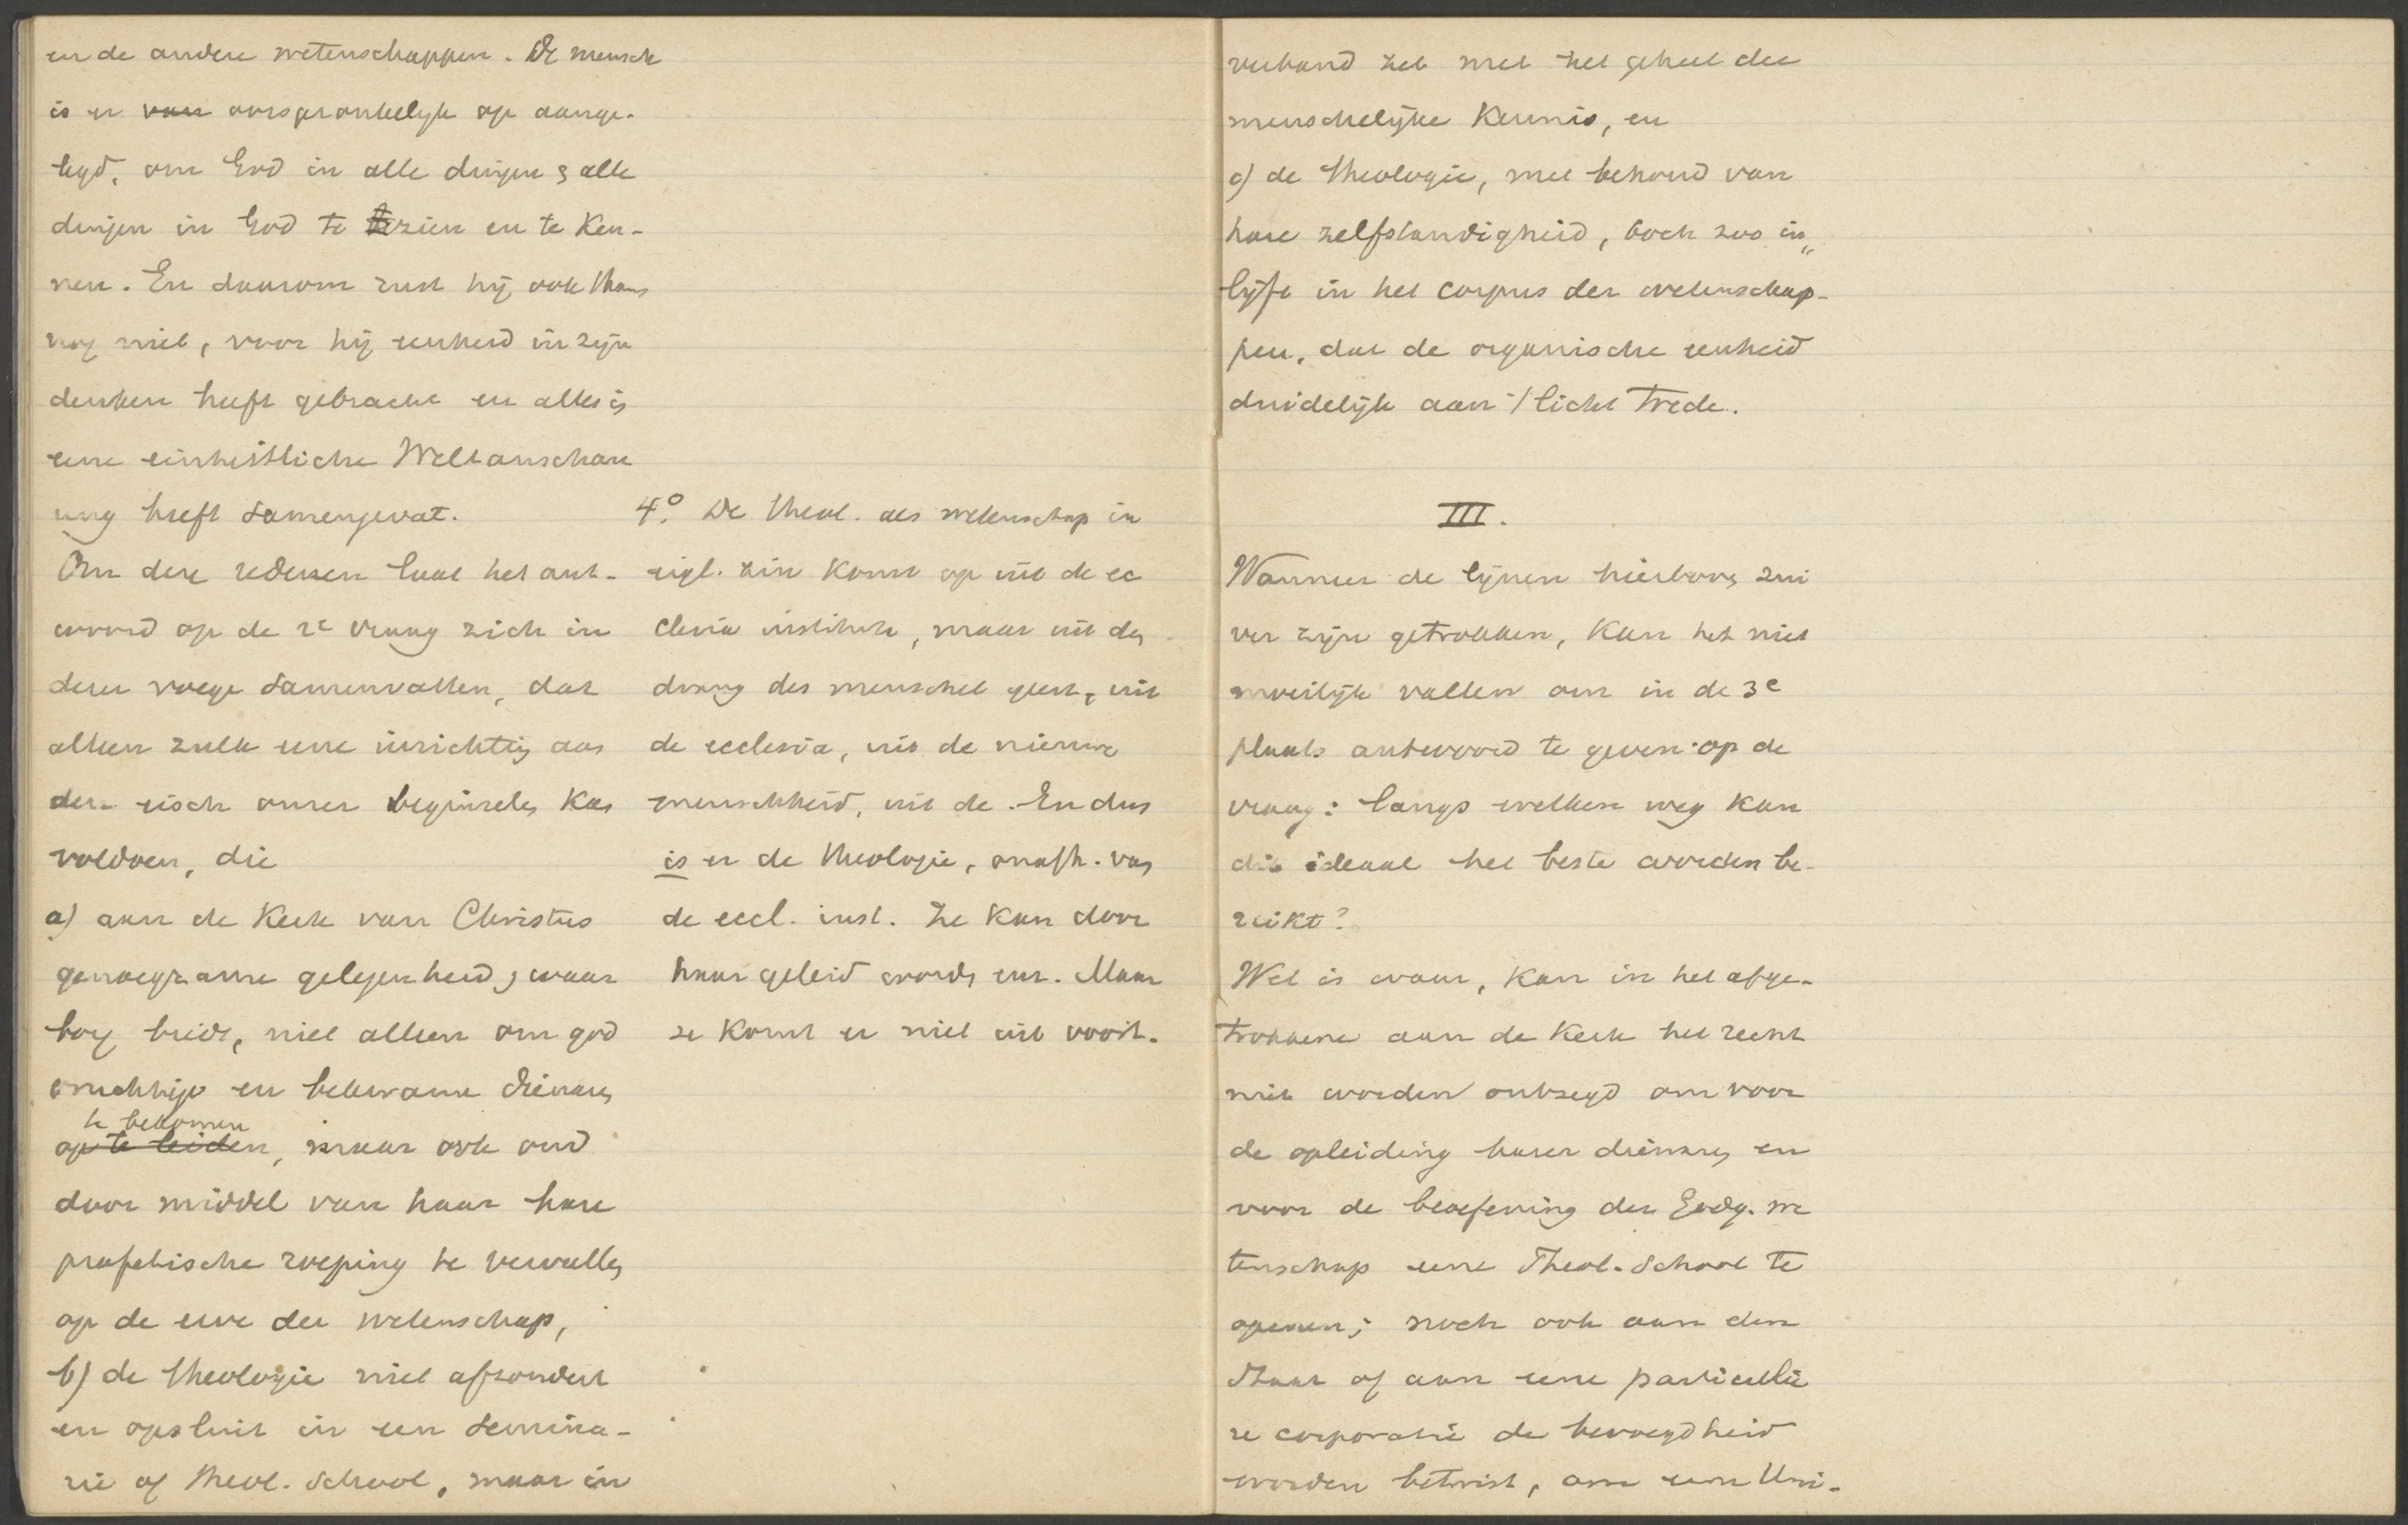 en de andere wetenschappen. De mensch
is er van oorspronkelijk op aange-
legd, om God in alle dingen & alle
dingen in God te zien en te ken-
nen. En daarom rust hij ook thans
nog niet, voor hij eenheid in zijn
denken heeft gebracht en alles in
eene einheitliche Weltanschau
ung heeft samengevat.
Om deze redenen laat het ant-
woord op de 2e vraag zich in
dezer voege samenvatten, dat
alleen zulk eene inrichting aan
den eisch onzer beginselen kan
voldoen, die
a) aan de Kerk van Christus
genoegzame gelegenheid & waar
borg biedt, niet alleen om god
vruchtige en bekwame dienaren
te bekomen
op te leiden, maar ook om
door middel van haar hare
profetische roeping te vervullen
op de erve der wetenschap,
b) de theologie niet afzondert
en opsluit in een semina-
rie of theol. School, maar in
4o. De theol. als wetenschap in
eigl. zin komt op uit de ec
clesia instituta, maar uit den
drang des menschel geest, uit
de ecclesia, uit de nieuwe
menschheid, uit de. En dus
is er de theologie, onafh. van
de eccl. inst. Ze kan door
haar geleid worden enz. Maar
ze komt er niet uit voort.
verband zet met het geheel der
menschelijke Kennis, en
c) de theologie, met behoud van
hare zelfstandigheid, toch zoo in„
lijft in het corpus der wetenschap-
pen, dat de organische eenheid
duidelijk aan 't licht trede.
III.
Wanneer de lijnen hierboven zui
ver zijn getrokken, kan het niet
moeilijk vallen om in de 3e
plaats antwoord te geven op de
vraag: langs welken weg kan
dit ideaal het beste worden be-
reikt?
Wel is waar, kan in het afge-
trokkene aan de Kerk het recht
niet worden ontzegd om voor
de opleiding harer dienaren en
voor de beoefening der Godg. we
tenschap eene Theol. School te
openen; noch ook aan den
Staat of aan eene particulie
re corporatie de bevoegdheid
worden betwist, om eene Uni-